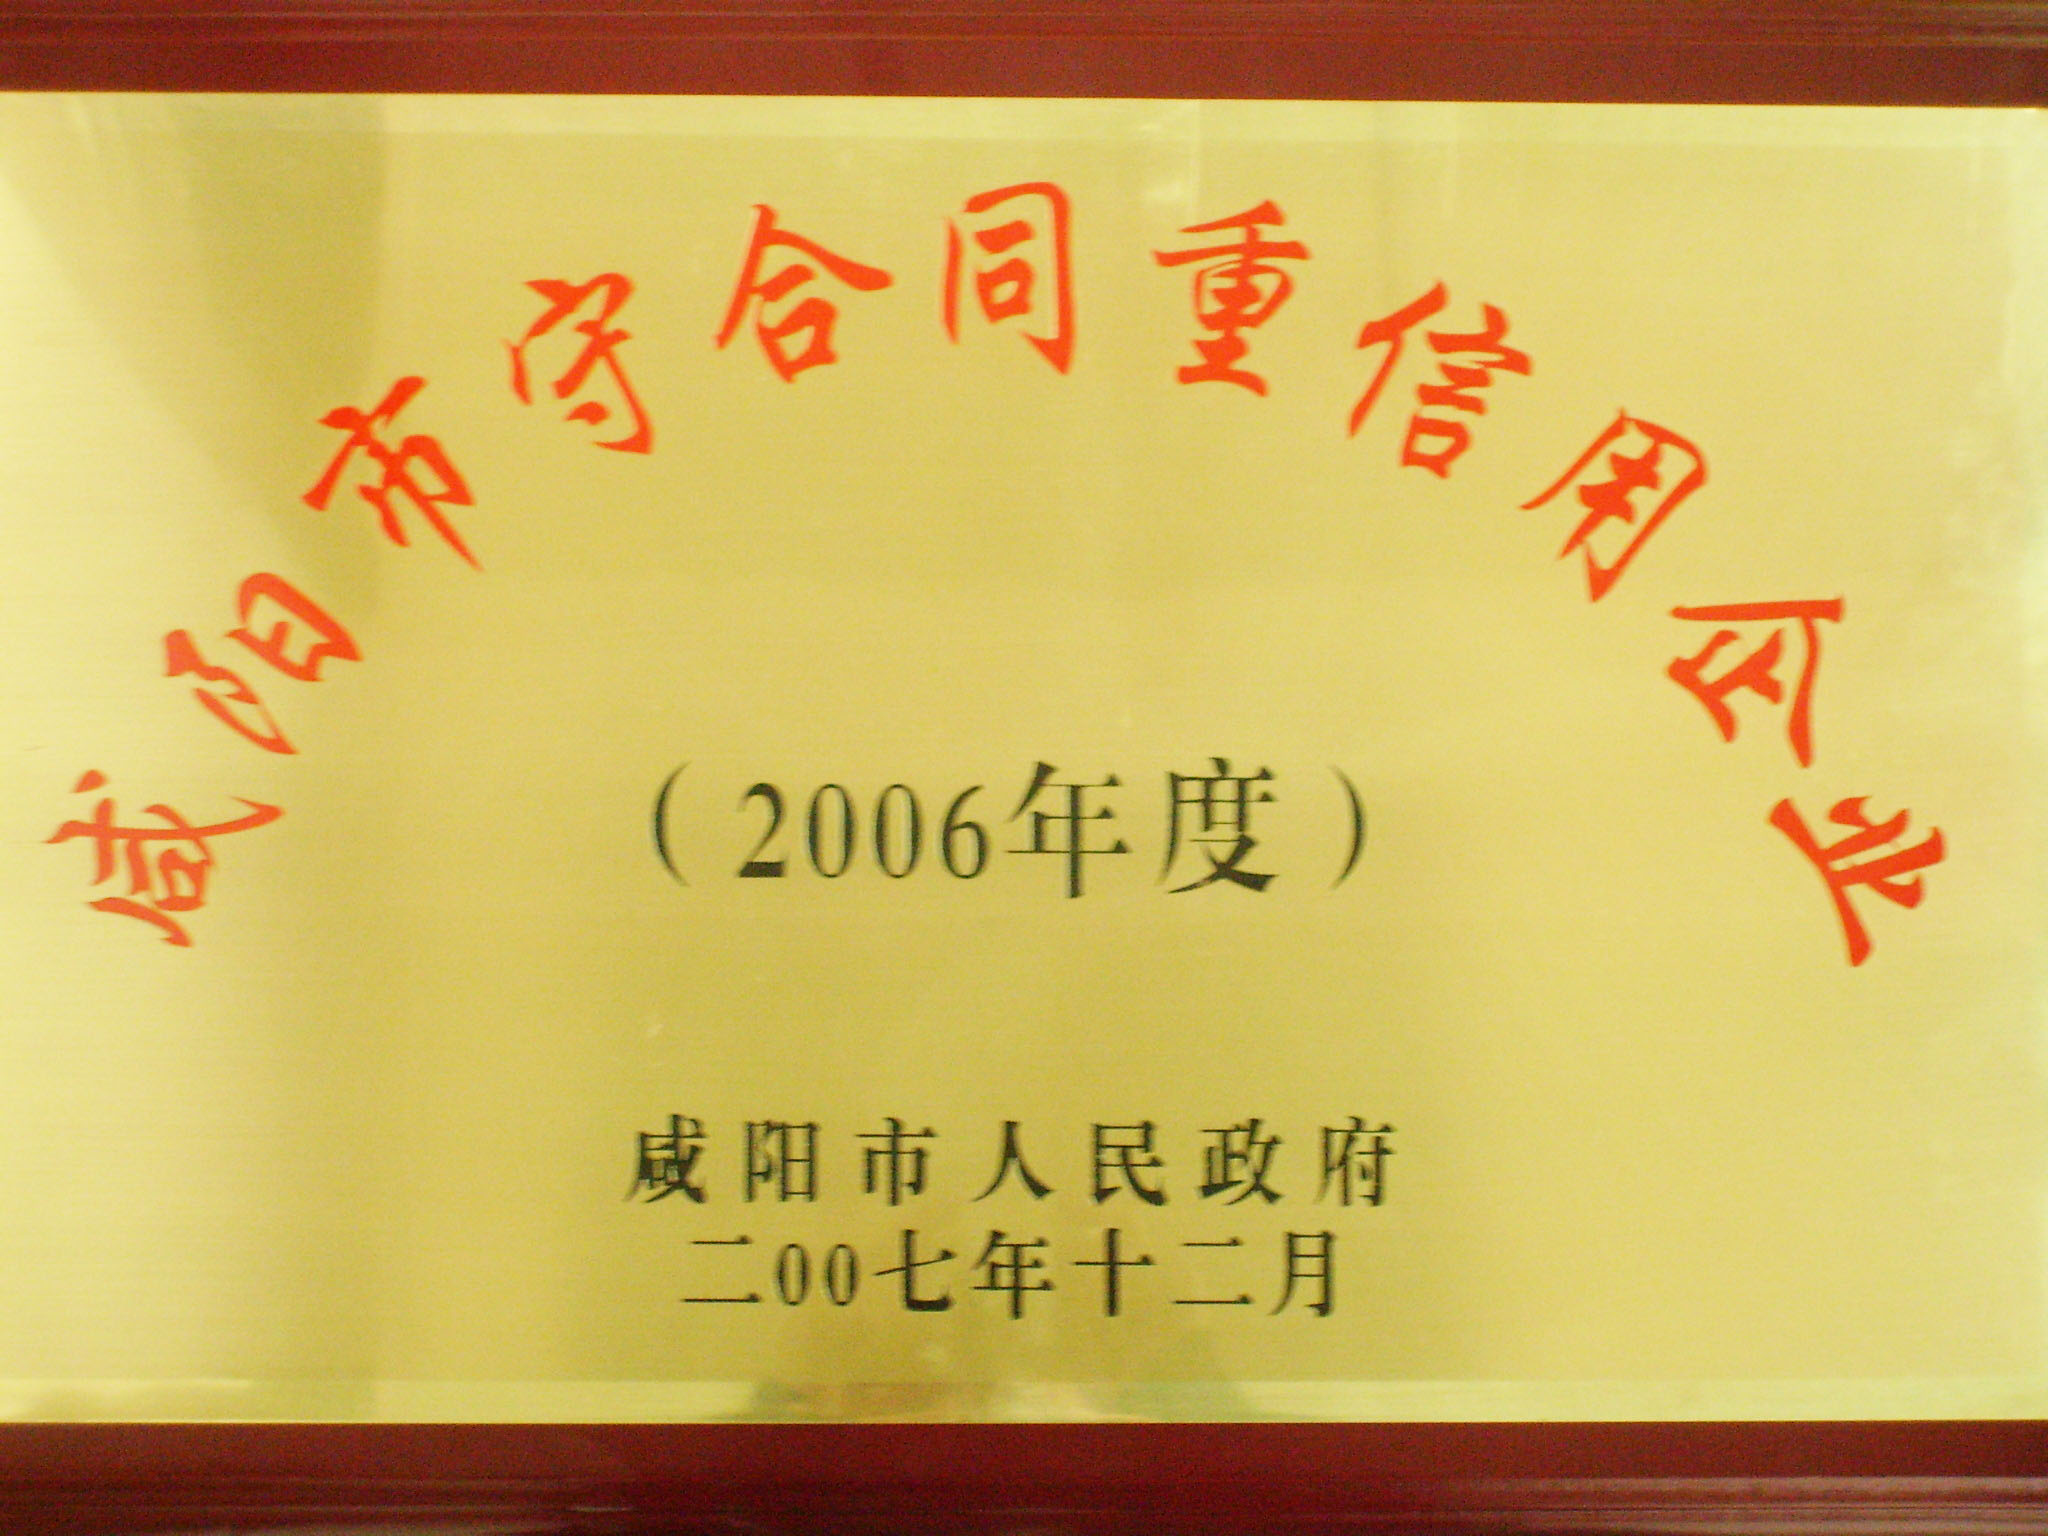 咸阳市守合同重信用企业
（2006年度）
咸阳市人民政府
二00七年十二月